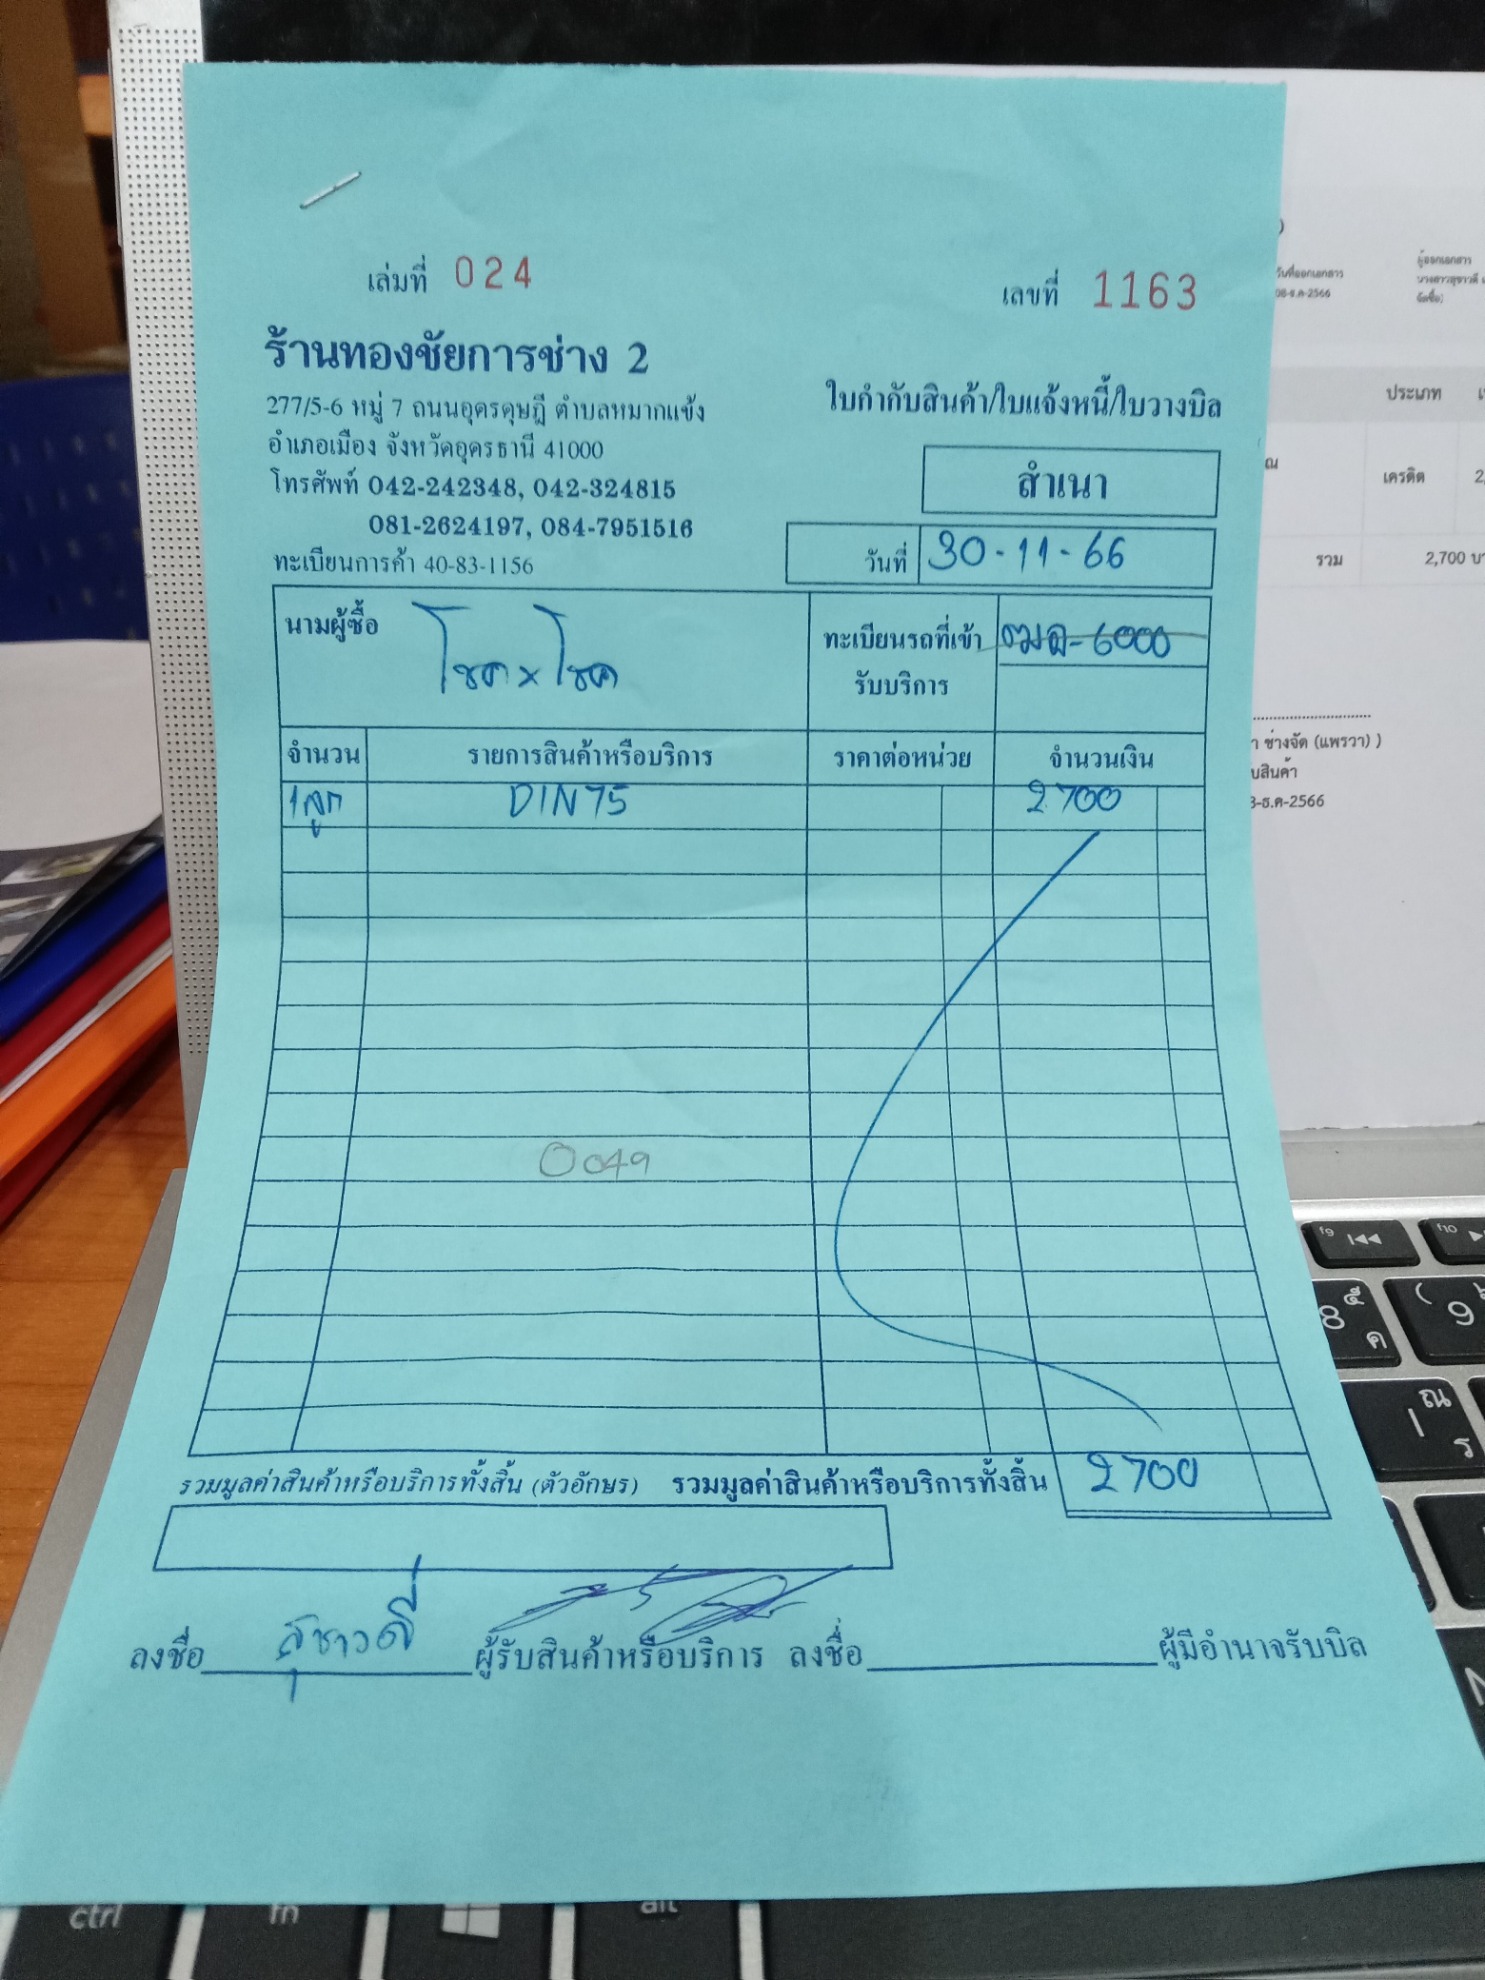 เล่มที่ 024
เลขที่ 1163
ร้านทองชัยการช่าง 2
277/5-6 หมู่ 7 ถนนอุดรดุษฎี ตำบลหมากแข้ง
อำเภอเมือง จังหวัดอุดรธานี 41000
โทรศัพท์ 042-242348, 042-324815
081-2624197, 084-7951516
ทะเบียนการค้า 40-83-1156
ใบกำกับสินค้า/ใบแจ้งหนี้/ใบวางบิล
สำเนา
วันที่ 30-11-66
นามผู้ซื้อ โชค x โชค
ทะเบียนรถที่เข้า
รับบริการ
6000
จำนวน รายการสินค้าหรือบริการ ราคาต่อหน่วย จำนวนเงิน
1 ลูก DIN75 2700
0049
รวมมูลค่าสินค้าหรือบริการทั้งสิ้น (ตัวอักษร) รวมมูลค่าสินค้าหรือบริการทั้งสิ้น 2700
ลงชื่อ สุชาวดี ผู้รับสินค้าหรือบริการ ลงชื่อ ผู้มีอำนาจรับบิล
วันที่ออกเอกสาร
08-ธ.ค-2566
ผู้ออกเอกสาร
นางสาวสุชาวดี
จัดซื้อ
ประเภท
เครดิต
รวม 2,700
ช่างจัด (แพรวา) )
ธ.ค-2566
f9 f10
8 ๕ ค
( 9
ณ ร
ctrl fn alt